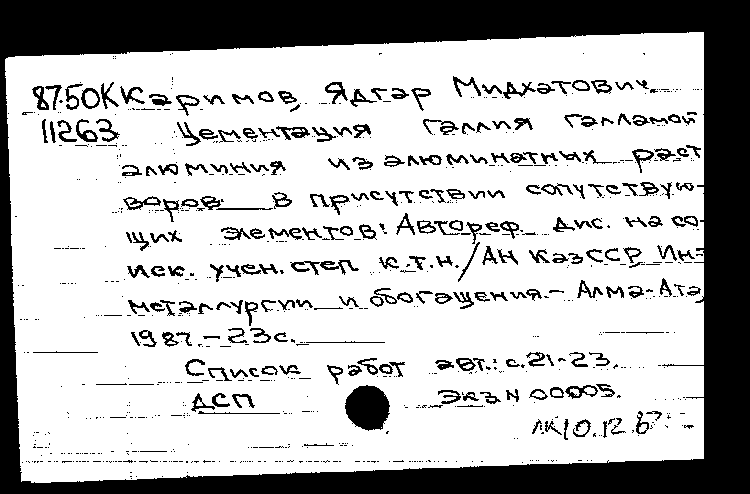 87-50К Каримов, Ядгар Мидхатович.
11263 Цементация галлия галламой
алюминия из алюминатных раст
воров в присутствии сопутствую-
щих элементов: Автореф. дис. на со-
иск. учен. степ к.т.н. / АН КазССР. Ин-т
металлургии и обогащения. - Алма-Ата,
1987. - 23 с.
Список работ авт.: с. 21-23.
ДСП Экз N 00005.
10.12.87